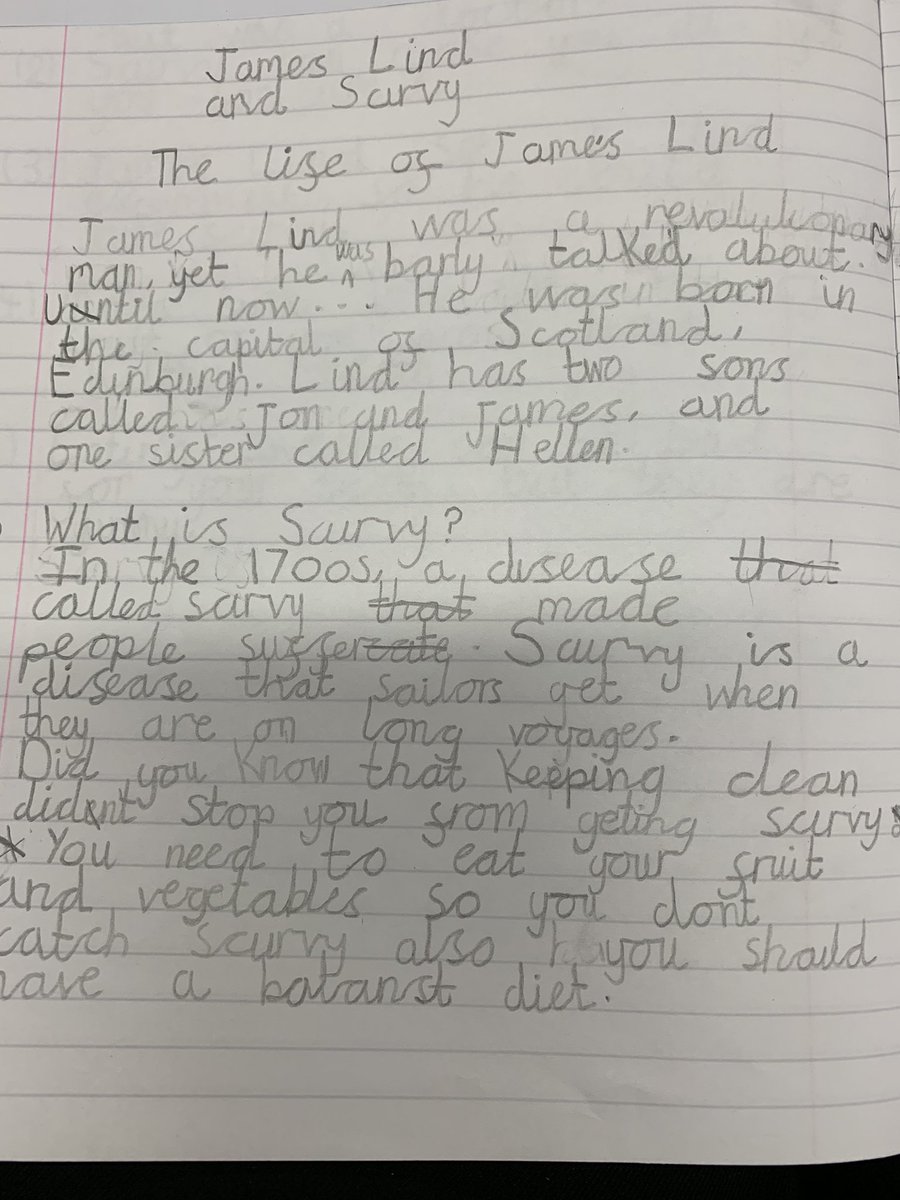 James Lind
and Scurvy
The life of James Lind
James Lind was a revolutionary
man, yet he was barly talked about.
Until now... He was born in
the capital of Scotland,
Edinburgh. Lind has two sons
called Jon and James, and
one sister called Hellen.
What is Scurvy?
In the 1700s, a disease that
called scurvy that made
people suffercate. Scurvy is a
disease that sailors get when
they are on long voyages.
Did you know that keeping clean
didn't stop you from geting scurvy?
* You need to eat your fruit
and vegetables so you dont
catch scurvy also you should
have a balanst diet.